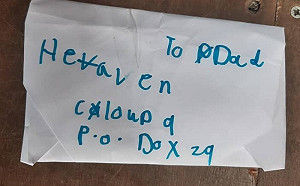 To Dad
Hevaven
cloud 9
P.O. Box 29